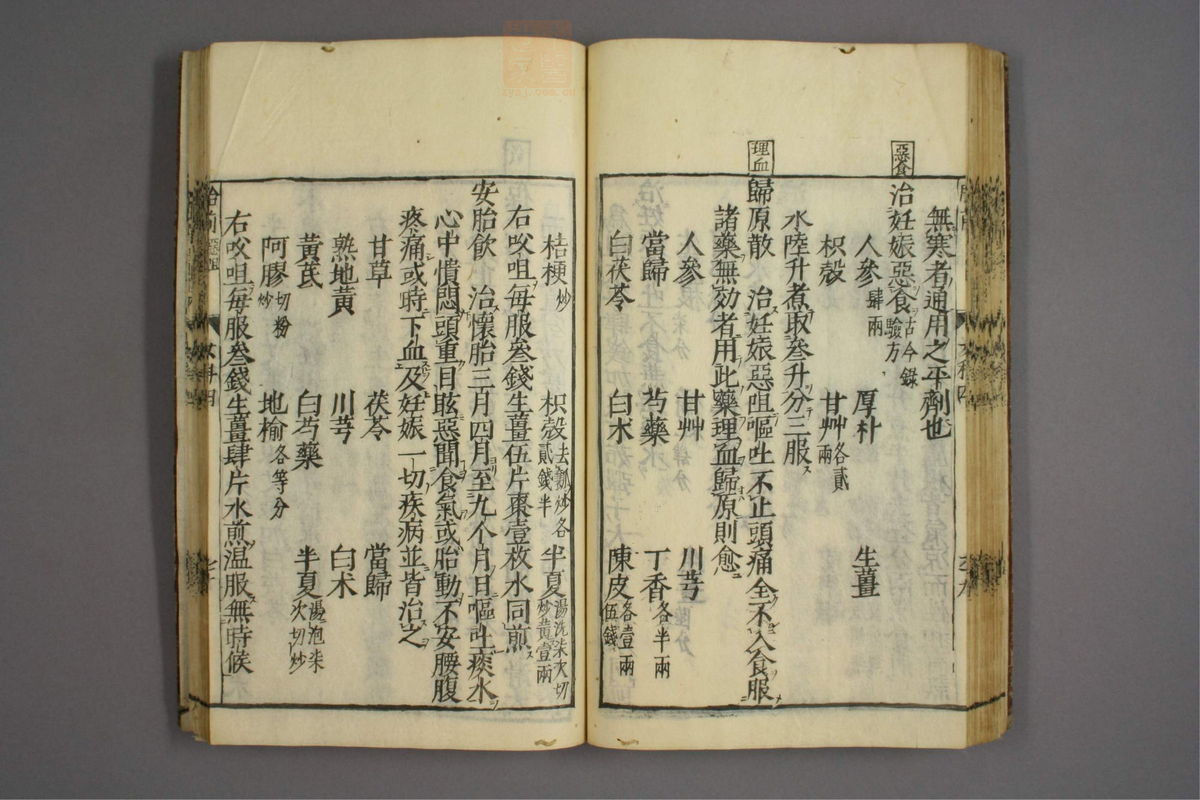 無寒者通用之平劑也
惡食
治妊娠惡食古今錄驗方
人參肆兩 厚朴 生薑
枳殼 甘艸各貳兩
水陸升煮取叄升分三服
理血
歸原散 治妊娠惡咀嘔吐不止頭痛全不入食服
諸藥無効者用此藥理血歸原則愈
人參 甘艸 川芎
當歸 芍藥 丁香各半兩
白茯苓 白朮 陳皮各壹兩伍錢
桔梗炒 枳殼去瓤炒各貳錢半 半夏湯洗柒次切炒黃壹兩
右㕮咀每服叄錢生薑伍片棗壹枚水同煎
安胎飲 治懷胎三月四月至九个月日嘔吐痰水
心中憒悶頭重目眩惡聞食氣或胎動不安腰腹
疼痛或時下血及妊娠一切疾病並皆治之
甘草 茯苓 當歸
熟地黃 川芎 白朮
黃芪 白芍藥 半夏湯泡柒次切炒
阿膠切粉炒 地榆各等分
右㕮咀每服叄錢生薑肆片水煎温服無時候